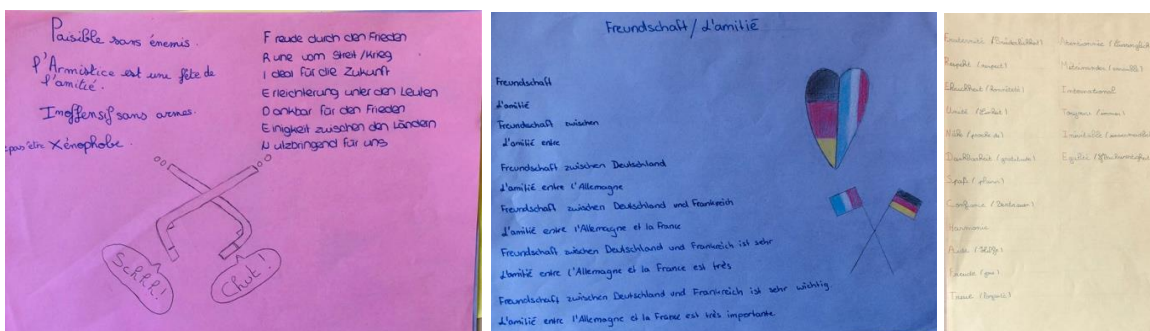 Paisible sans énemis.
l'Armistice est une fête de
l'amitié.
Inoffensif sans armes.
pas être Xénophobe.
Freude durch den Frieden
Rune vom Streit/Krieg
Ideal für die Zukunft
Erleichterung unter den Leuten
Dankbar für den Frieden
Einigkeit zwischen den Ländern
Nutzbringend für uns
Schhh!
Chut!
Freundschaft / L'amitié
Freundschaft
L'amitié
Freundschaft zwischen
L'amitié entre
Freundschaft zwischen Deutschland
L'amitié entre l'Allemagne
Freundschaft zwischen Deutschland und Frankreich
L'amitié entre l'Allemagne et la France
Freundschaft zwischen Deutschland und Frankreich ist sehr
L'amitié entre l'Allemagne et la France est très
Freundschaft zwischen Deutschland und Frankreich ist sehr wichtig.
L'amitié entre l'Allemagne et la France est très importante
Fraternité (Brüderlichkeit)
Respekt (respect)
Ehrlichkeit (honnêteté)
Unité (Einheit)
Nähe (proche de)
Dankbarkeit (gratitude)
Spaß (plaisir)
Confiance (Vertrauen)
Harmonie
Aide (Hilfe)
Treue (loyauté)
Miteinander (ensemble)
International
Toujours (immer)
Egalité